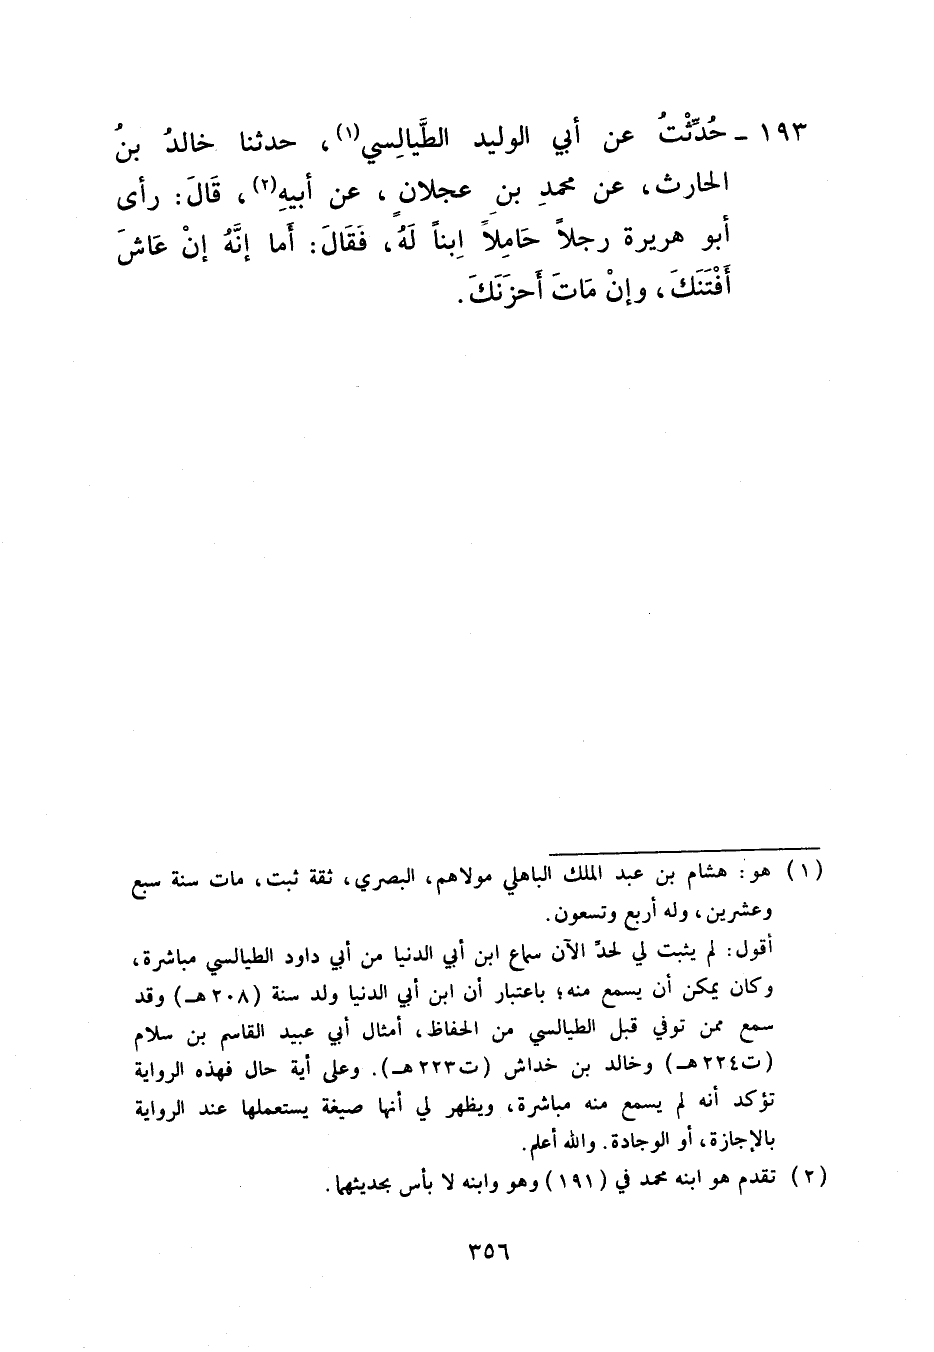 ١٩٣ ـ حُدِّثْتُ عن أبي الوليد الطَّيالِسي(١)، حدثنا خالدُ بنُ
الحارث، عن محمدِ بنِ عجلانٍ، عن أبيهِ(٢)، قَالَ: رأى
أبو هريرة رجلاً حَامِلاً اِبناً لَهُ، فَقَالَ: أَما إنَّهُ إنْ عَاشَ
أَفْتَنَكَ، وإنْ مَاتَ أَحزَنَكَ.
(١) هو: هشام بن عبد الملك الباهلي مولاهم، البصري، ثقة ثبت، مات سنة سبع
وعشرين، وله أربع وتسعون.
أقول: لم يثبت لي لحدِّ الآن سماع ابن أبي الدنيا من أبي داود الطيالسي مباشرة،
وكان يمكن أن يسمع منه؛ باعتبار أن ابن أبي الدنيا ولد سنة (٢٠٨هـ) وقد
سمع ممن توفي قبل الطيالسي من الحفاظ، أمثال أبي عبيد القاسم بن سلام
(ت٢٢٤هـ) وخالد بن خداش (ت٢٢٣هـ). وعلى أية حال فهذه الرواية
تؤكد أنه لم يسمع منه مباشرة، ويظهر لي أنها صيغة يستعملها عند الرواية
بالإجازة، أو الوجادة. والله أعلم.
(٢) تقدم هو ابنه محمد في (١٩١) وهو وابنه لا بأس بحديثهما.
٣٥٦